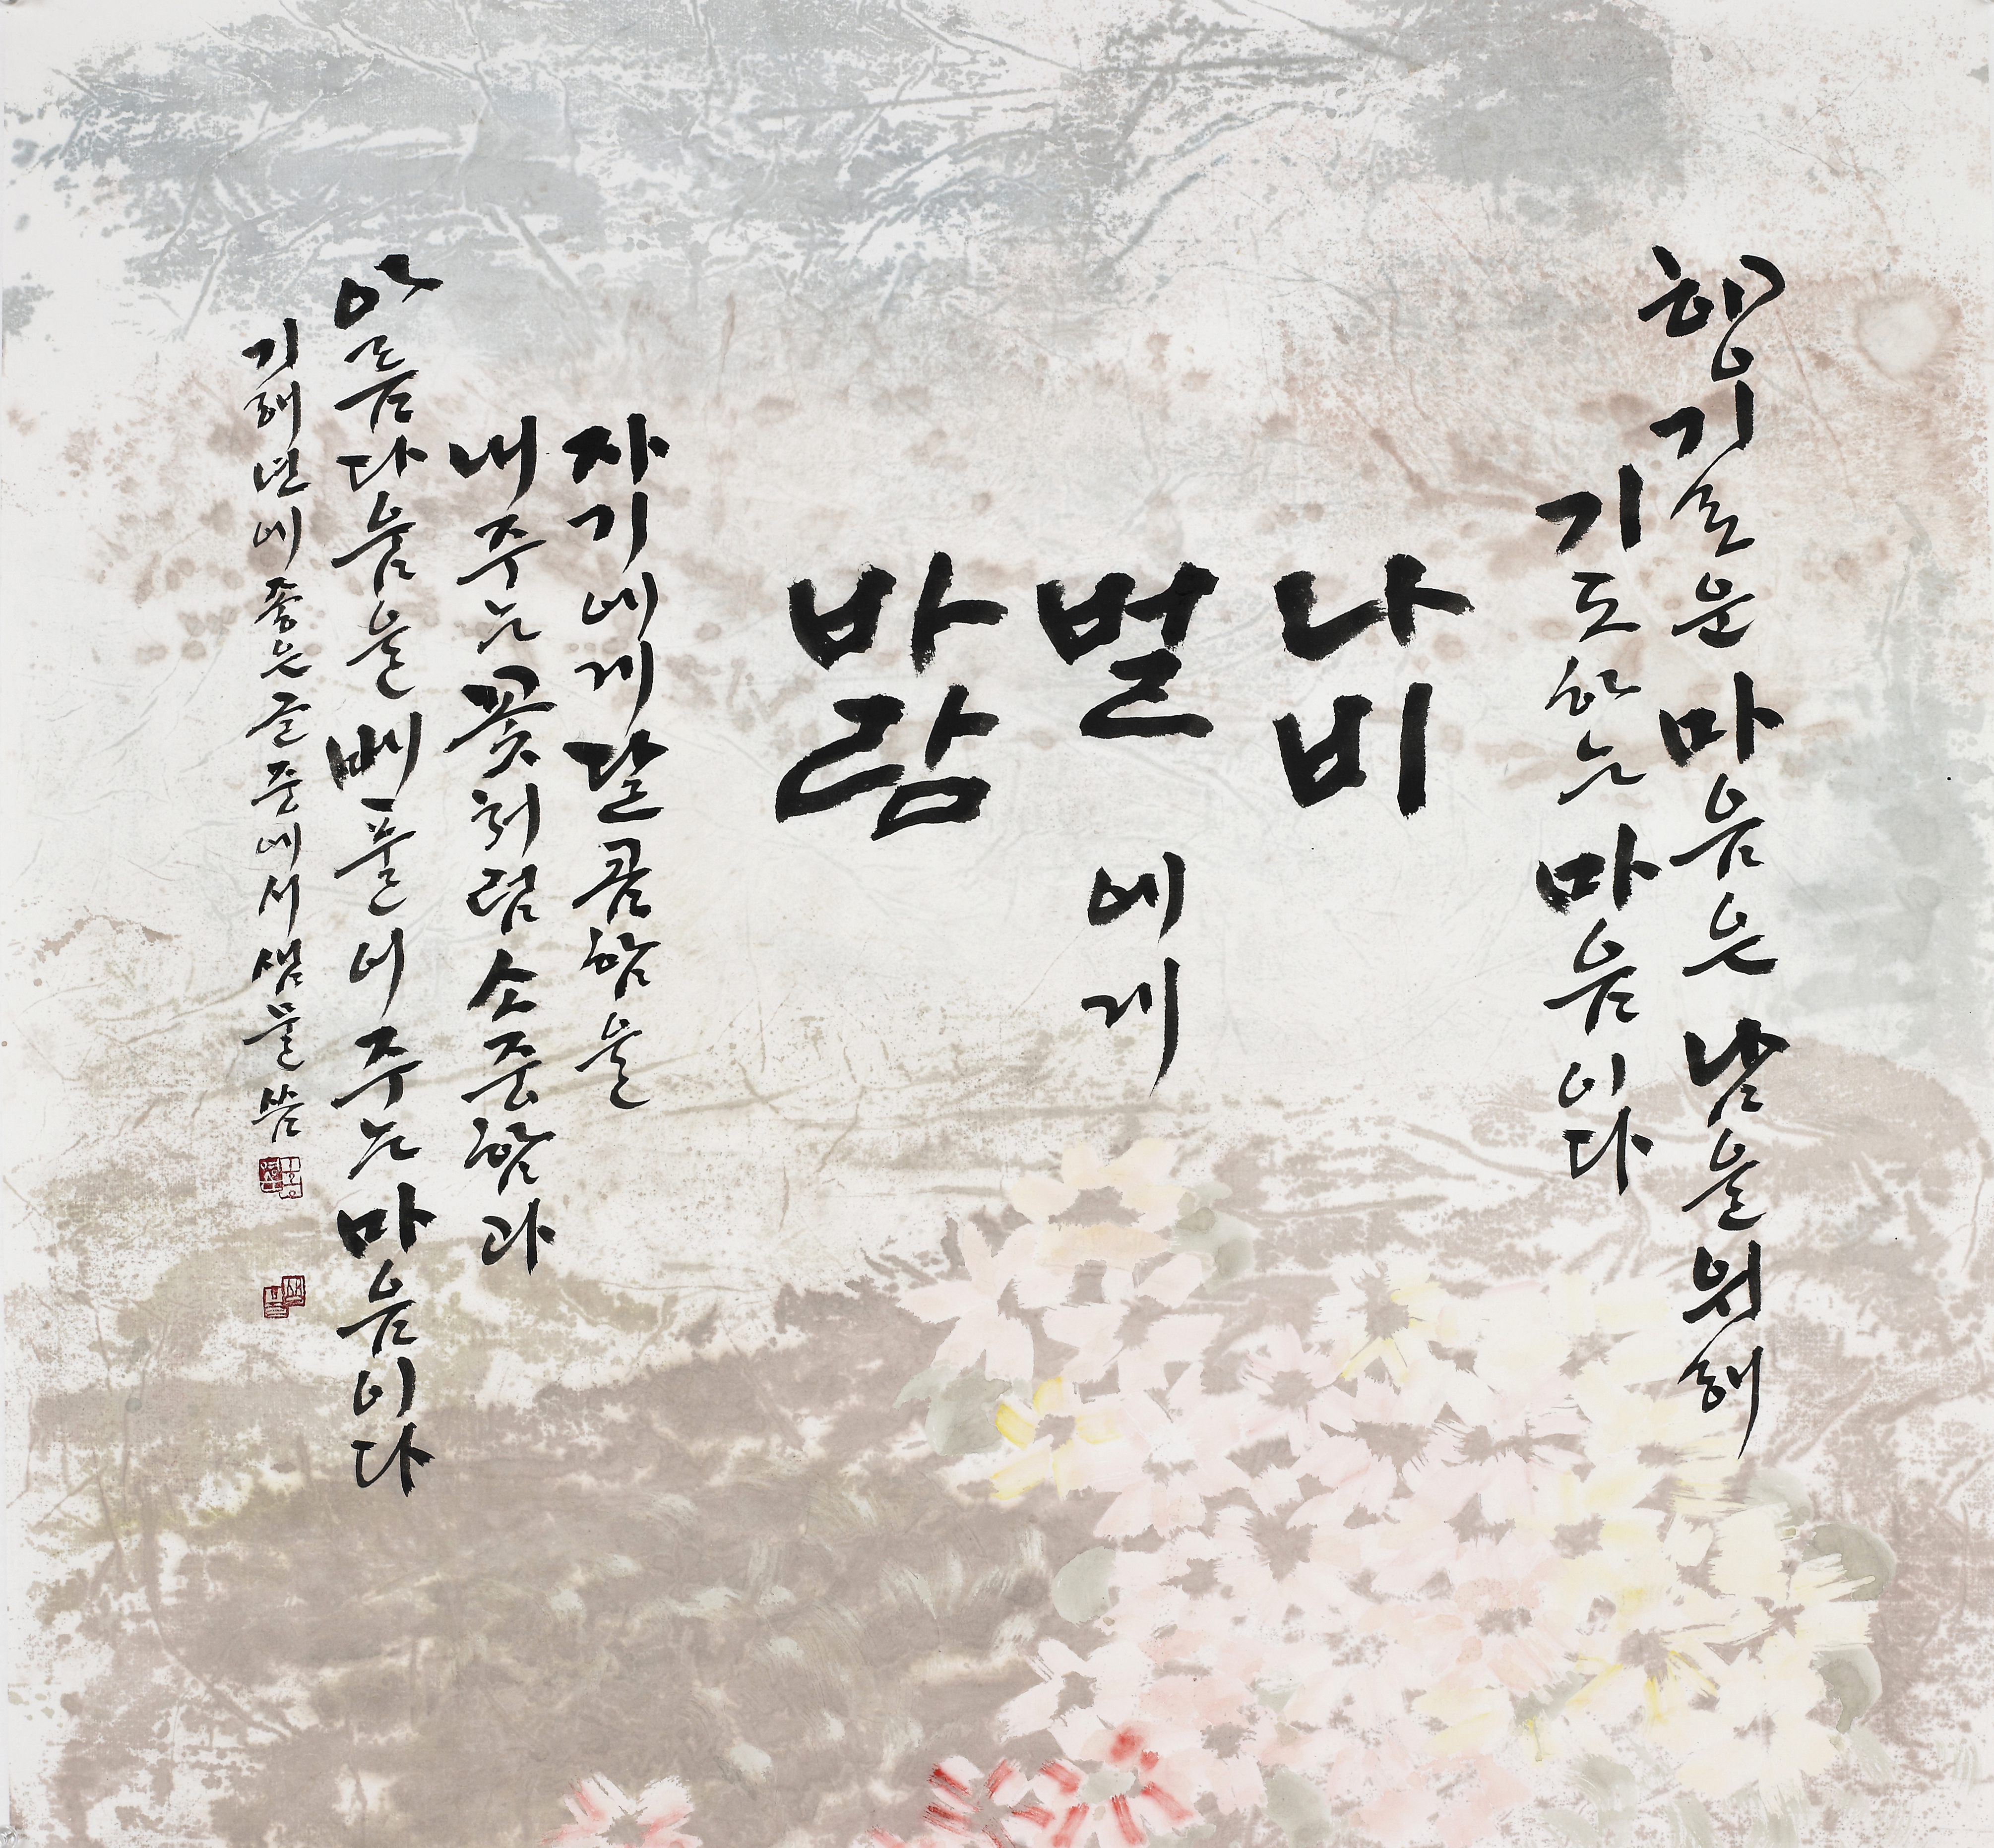 향기로운 마음은 남을 위해
기도하는 마음이다
나비
벌
바람
에게
자기에게 달콤함을
내주는 꽃처럼 소중함과
아름다움을 베풀어 주는 마음이다
기해년에 좋은 글 중에서 샘물 씀